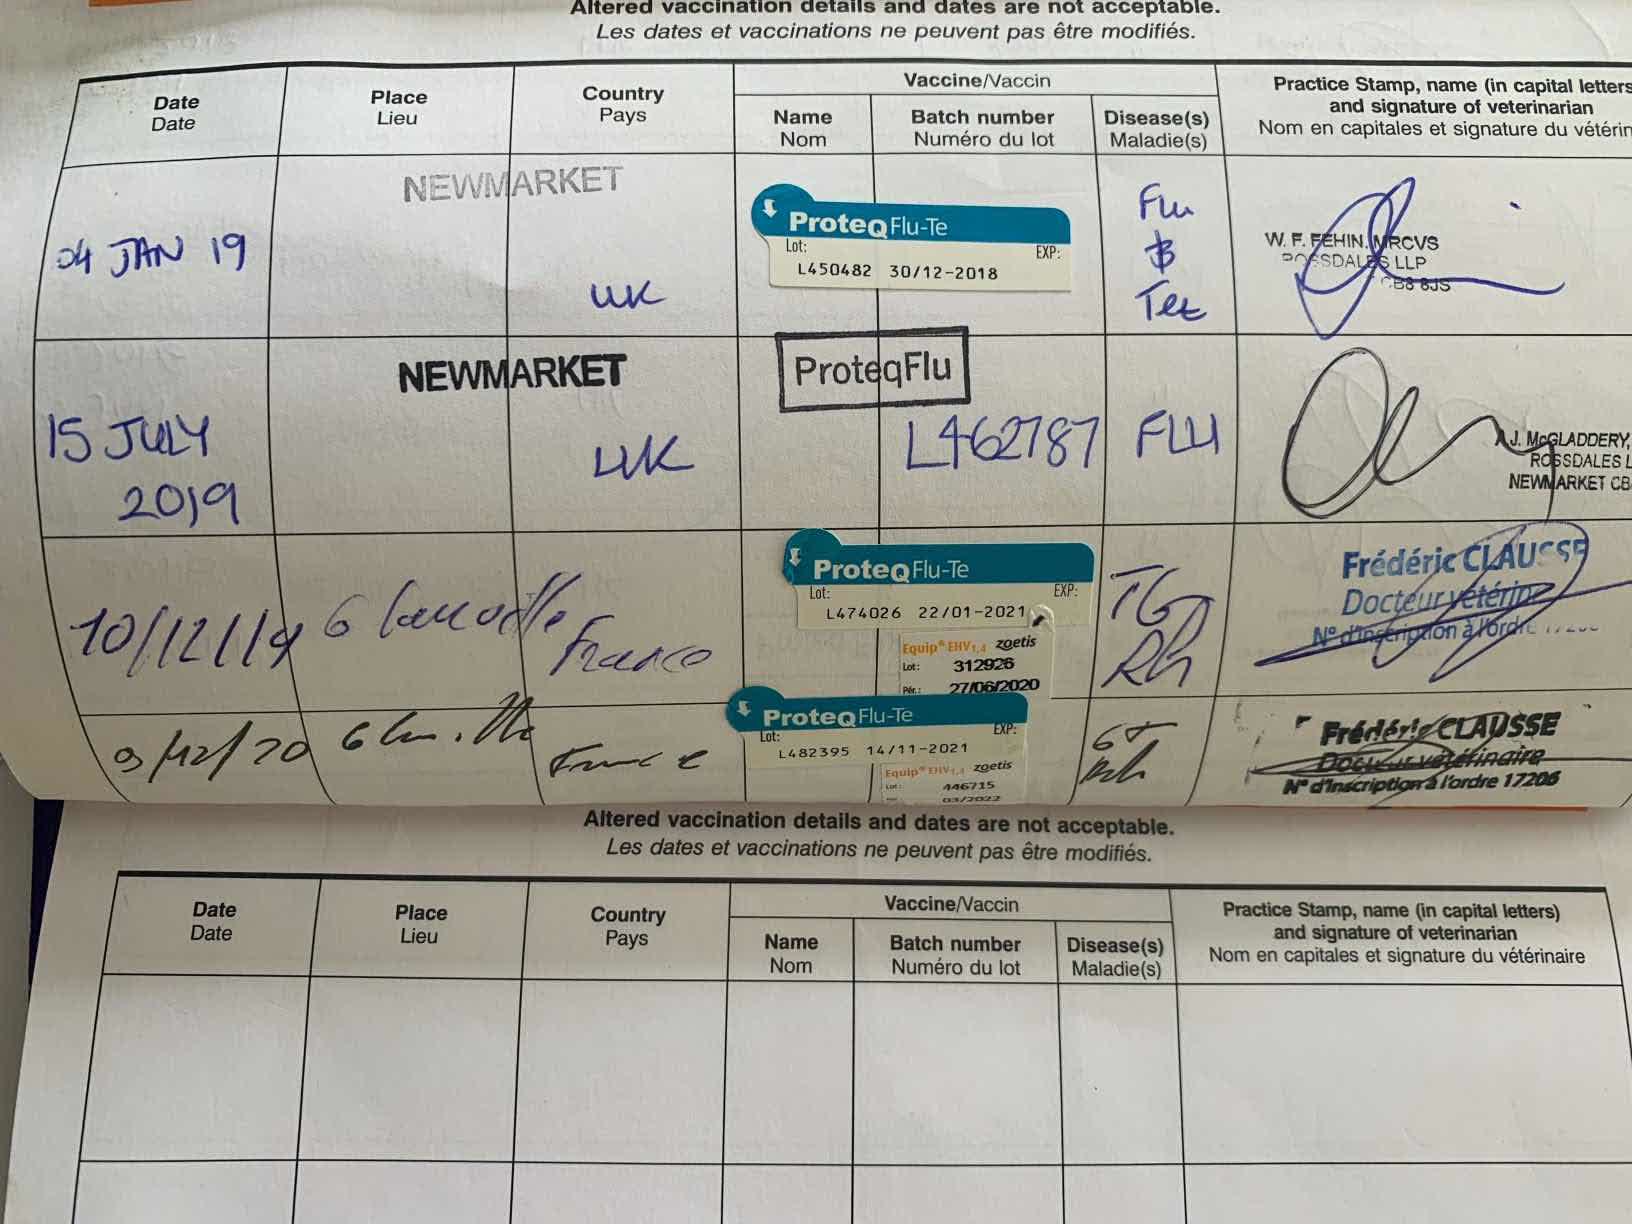 Altered vaccination details and dates are not acceptable.
Les dates et vaccinations ne peuvent pas être modifiés.
Date
Date
Place
Lieu
Country
Pays
Vaccine/Vaccin
Name
Nom
Batch number
Numéro du lot
Disease(s)
Maladie(s)
Practice Stamp, name (in capital letters
and signature of veterinarian
Nom en capitales et signature du vétérin
04 JAN 19
NEWMARKET
UK
ProteqFlu-Te
Lot:
EXP:
L450482 30/12-2018
Flu
&
Tet
W. F. FEHIN. MRCVS
ROSSDALES LLP
CB8 8JS
15 JULY
2019
NEWMARKET
UK
ProteqFlu
L462787
FLU
A.J. McGLADDERY,
ROSSDALES L
NEWMARKET CB
10/12/19
France
ProteqFlu-Te
Lot:
EXP:
L474026 22/01-2021
Equip® EHV1,4 zoetis
Lot: 312926
Pér.: 27/06/2020
TG
Rh
Frédéric CLAUSSE
Docteur vétérin
N° d'inscription à l'ordre 17206
9/12/20
France
ProteqFlu-Te
Lot:
EXP:
L482395 14/11-2021
Equip® EHV1,4 zoetis
Lot: 446715
03/2022
GT
Rh
Frédéric CLAUSSE
Docteur vétérinaire
N° d'inscription à l'ordre 17206
Altered vaccination details and dates are not acceptable.
Les dates et vaccinations ne peuvent pas être modifiés.
Date
Date
Place
Lieu
Country
Pays
Vaccine/Vaccin
Name
Nom
Batch number
Numéro du lot
Disease(s)
Maladie(s)
Practice Stamp, name (in capital letters)
and signature of veterinarian
Nom en capitales et signature du vétérinaire